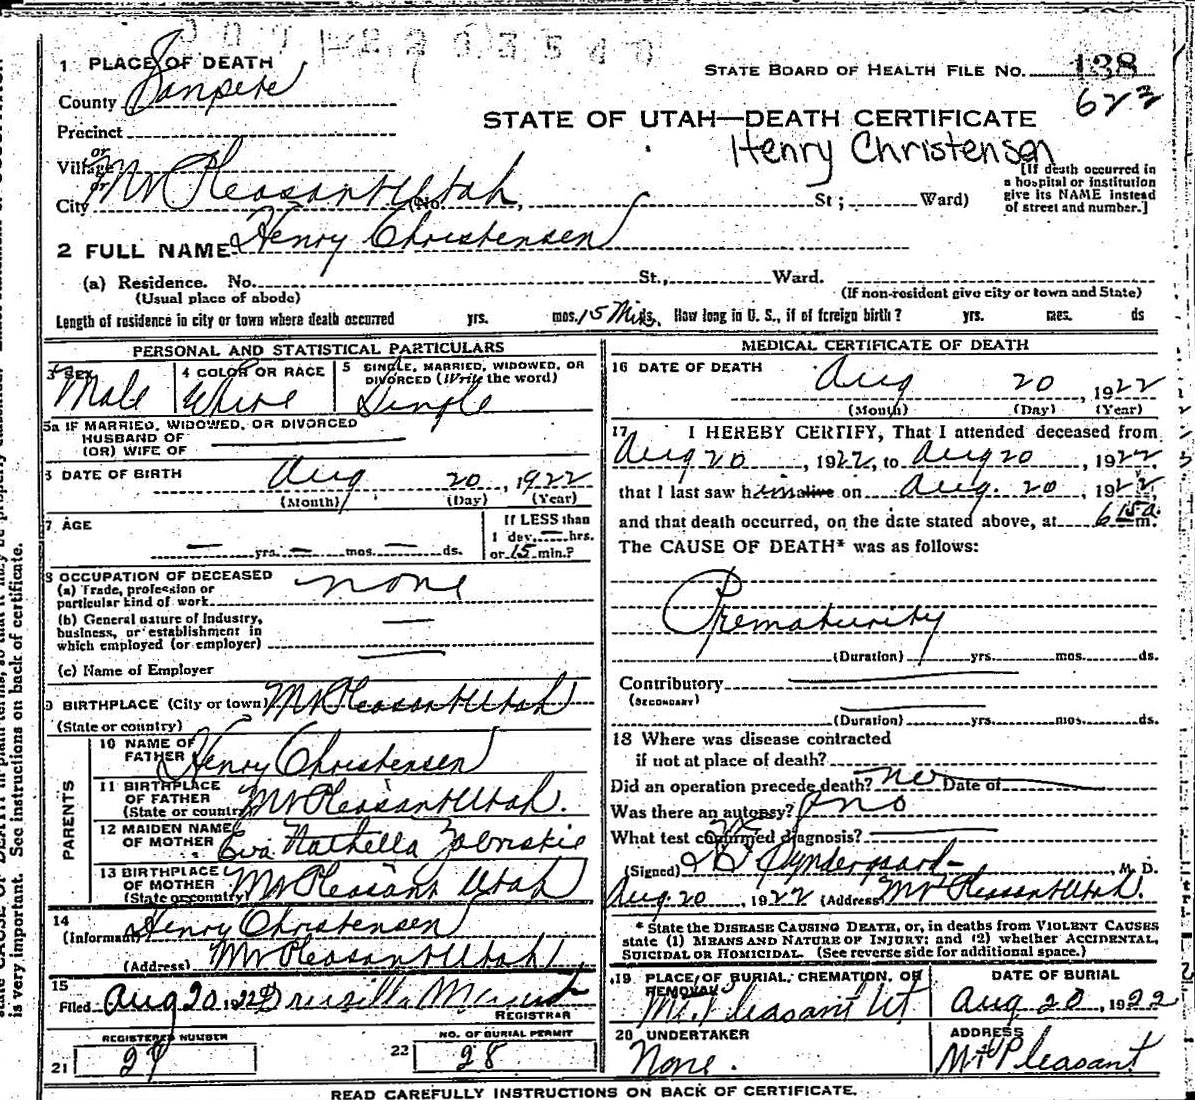 1 PLACE OF DEATH
STATE BOARD OF HEALTH FILE No. 138
County Sanpete
622
STATE OF UTAH—DEATH CERTIFICATE
Precinct
Henry Christensen
or
Village
or
City Mt Pleasant Utah (No. St; Ward)
[If death occurred in
a hospital or institution
give its NAME instead
of street and number.]
2 FULL NAME Henry Christensen
(a) Residence. No. St., Ward.
(Usual place of abode) (If non-resident give city or town and State)
Length of residence in city or town where death occurred yrs. mos. 15 Min ds. How long in U. S., if of foreign birth? yrs. mos. ds
PERSONAL AND STATISTICAL PARTICULARS
3 SEX Male
4 COLOR OR RACE White
5 SINGLE, MARRIED, WIDOWED, OR
DIVORCED (Write the word)
Single
5a IF MARRIED, WIDOWED, OR DIVORCED
HUSBAND OF
(OR) WIFE OF
6 DATE OF BIRTH Aug 20, 1922
(Month) (Day) (Year)
7 AGE
yrs. mos. ds.
If LESS than
1 day hrs.
or 15 min.?
8 OCCUPATION OF DECEASED
(a) Trade, profession or
particular kind of work none
(b) General nature of industry,
business, or establishment in
which employed (or employer)
(c) Name of Employer
9 BIRTHPLACE (City or town) Mt Pleasant Utah
(State or country)
PARENTS
10 NAME OF
FATHER Henry Christensen
11 BIRTHPLACE
OF FATHER
(State or country) Mt Pleasant Utah.
12 MAIDEN NAME
OF MOTHER Eva Nathella Zabriskie
13 BIRTHPLACE
OF MOTHER
(State or country) Mt Pleasant Utah
14
(Informant) Henry Christensen
(Address) Mt Pleasant Utah
15
Filed Aug 20 1922 Drucilla
REGISTRAR
REGISTERED NUMBER
21 29
NO. OF BURIAL PERMIT
22 28
MEDICAL CERTIFICATE OF DEATH
16 DATE OF DEATH Aug 20, 1922
(Month) (Day) (Year)
17 I HEREBY CERTIFY, That I attended deceased from
Aug 20, 1922, to Aug 20, 1922
that I last saw him alive on Aug. 20, 1922,
and that death occurred, on the date stated above, at 6 15 a m.
The CAUSE OF DEATH* was as follows:
Prematurity
(Duration) yrs. mos. ds.
Contributory
(SECONDARY)
(Duration) yrs. mos. ds.
18 Where was disease contracted
if not at place of death?
Did an operation precede death? no Date of
Was there an autopsy? no
What test confirmed diagnosis?
(Signed) Syndergaard M. D.
Aug. 20, 1922 (Address) Mt Pleasant Utah.
* State the DISEASE CAUSING DEATH, or, in deaths from VIOLENT CAUSES
state (1) MEANS AND NATURE OF INJURY; and (2) whether ACCIDENTAL,
SUICIDAL OR HOMICIDAL. (See reverse side for additional space.)
19 PLACE OF BURIAL, CREMATION, OR
REMOVAL
Mt. Pleasant Ut
DATE OF BURIAL
Aug 20, 1922
20 UNDERTAKER
None.
ADDRESS
Mt Pleasant
READ CAREFULLY INSTRUCTIONS ON BACK OF CERTIFICATE.
is very important. See instructions on back of certificate.